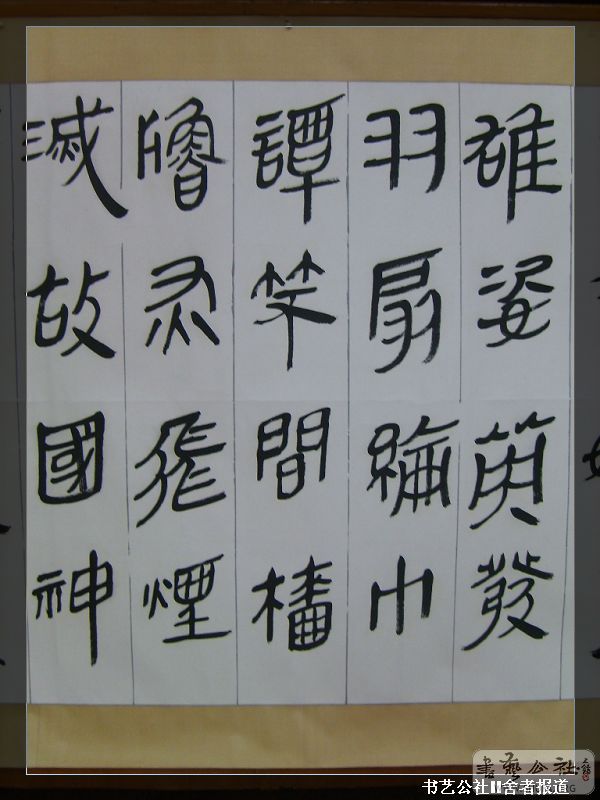 雄姿英發
羽扇綸巾
譚笑間檣
艣灰飛煙
滅故國神
书艺公社II舍者报道